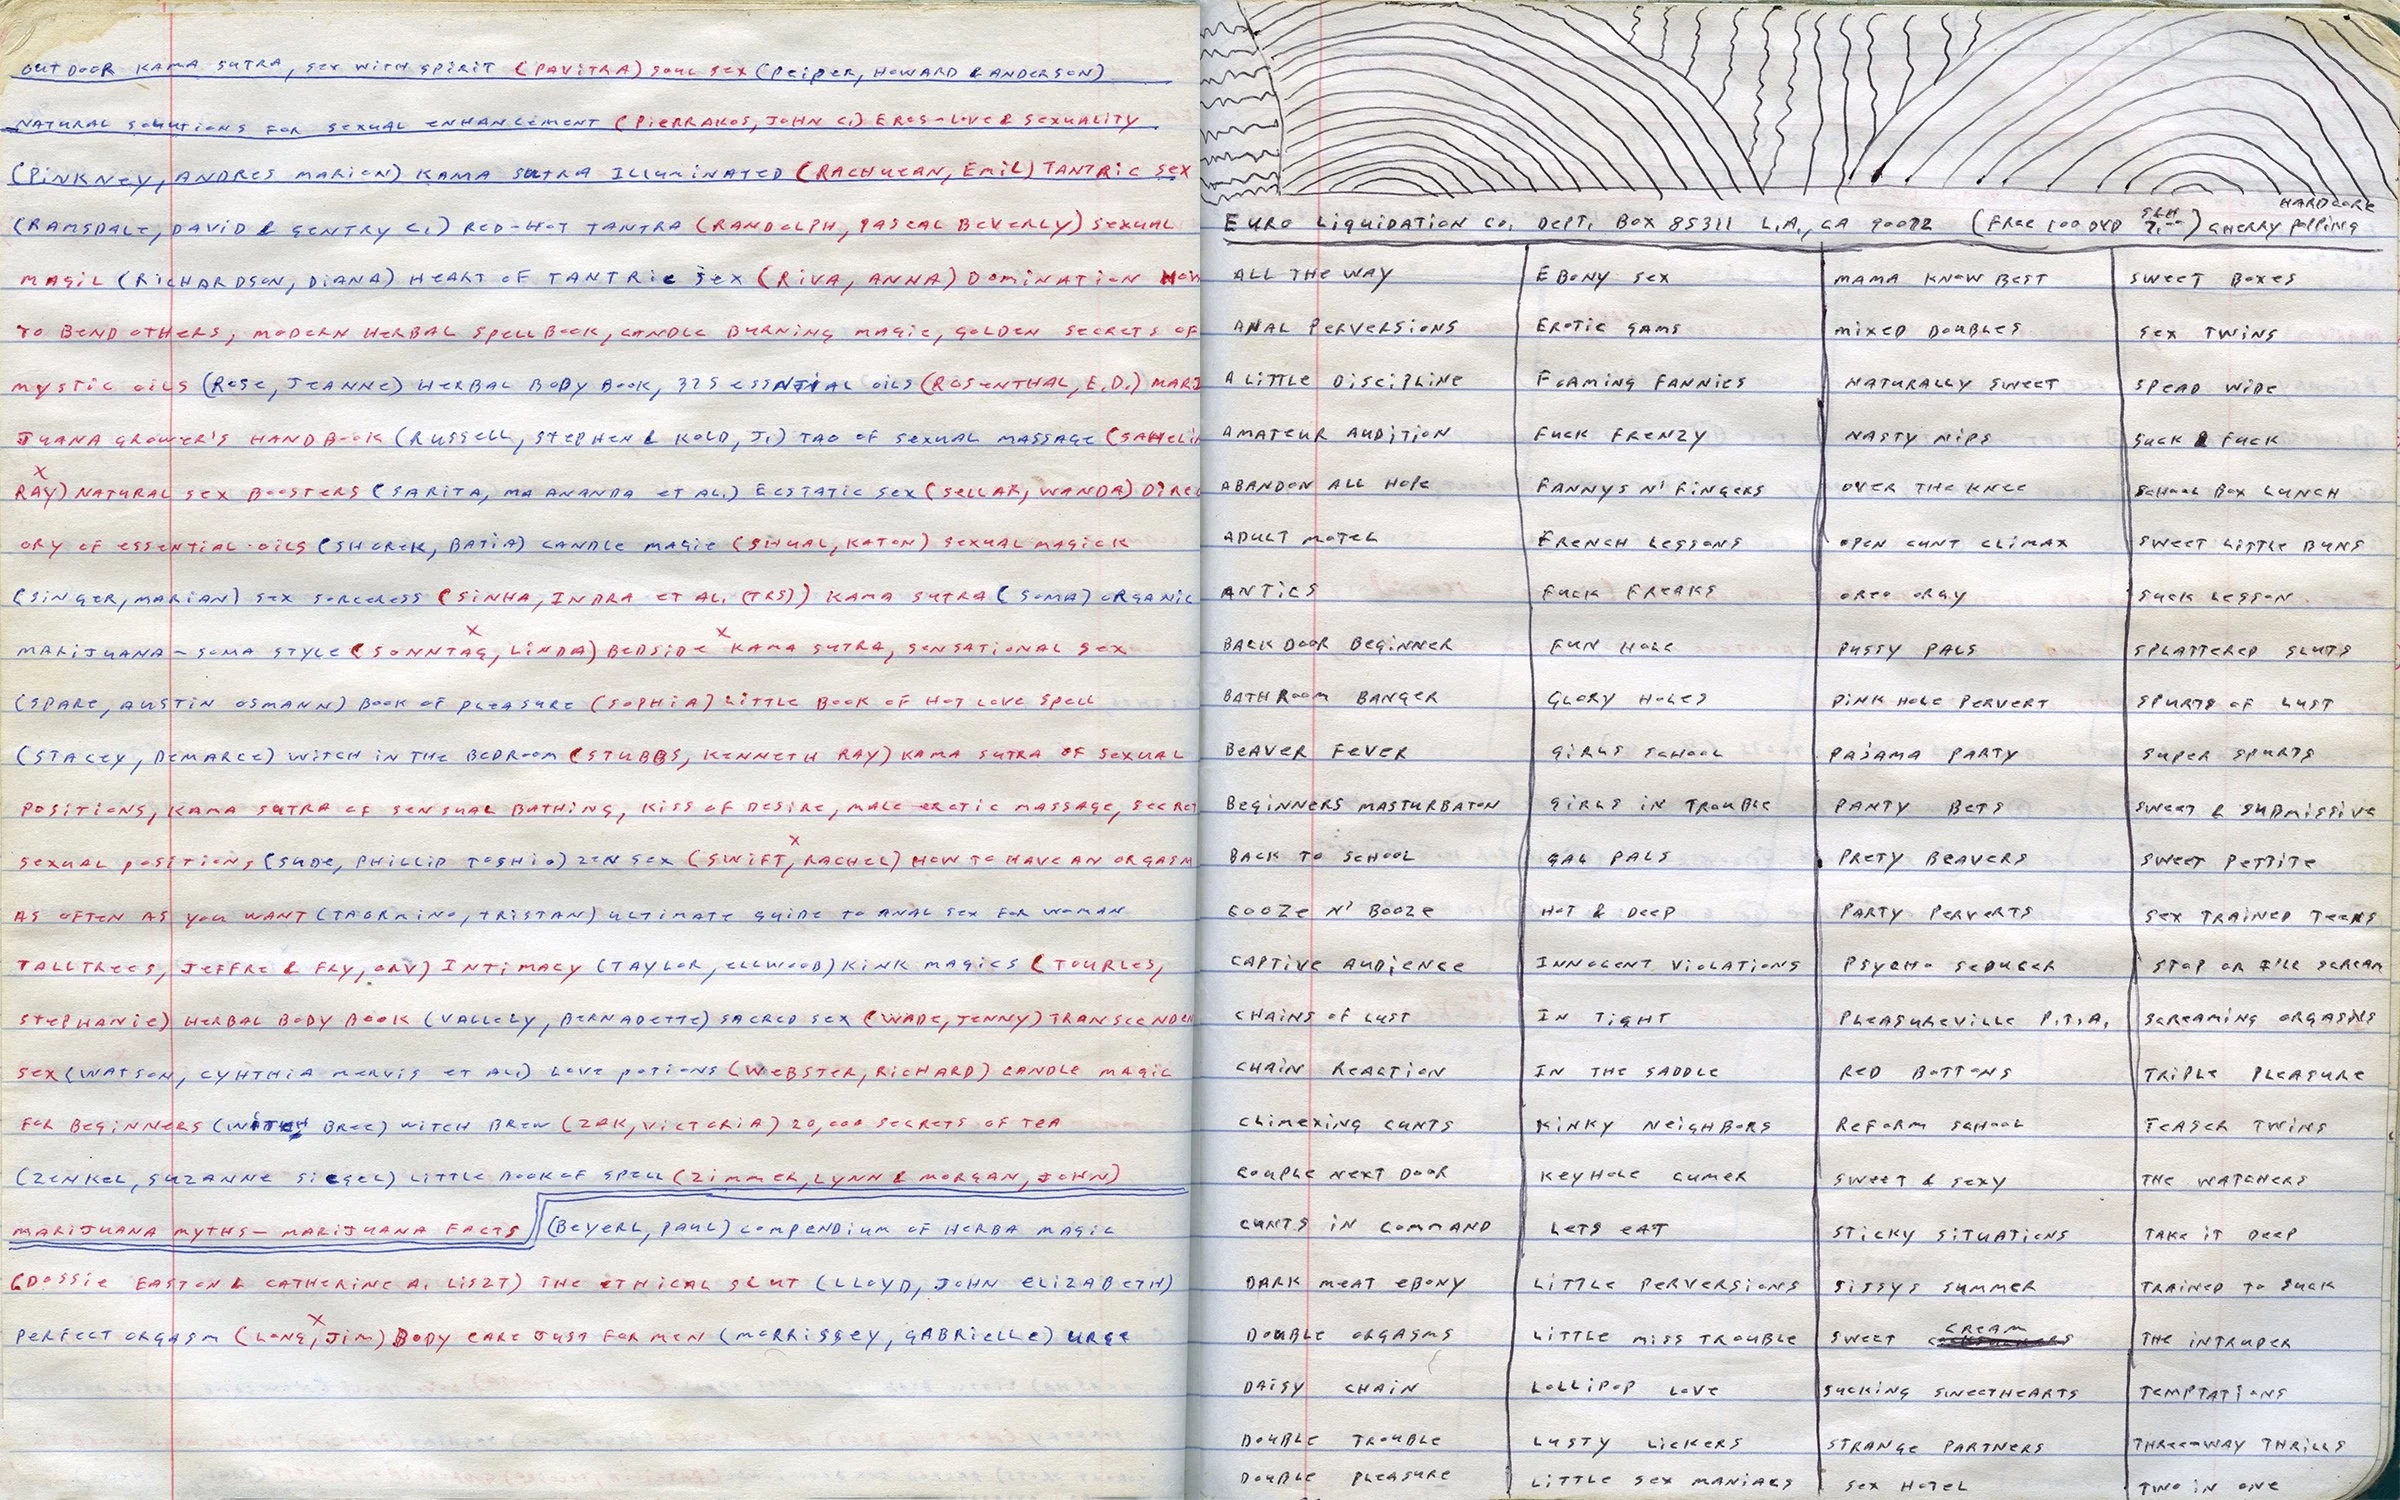 OUTDOOR KAMA SUTRA, SEX WITH SPIRIT (PAVITRA) SOUL SEX (PEIPER, HOWARD & ANDERSON)
NATURAL SOLUTIONS FOR SEXUAL ENHANCEMENT (PIERRAKOS, JOHN C.) EROS-LOVE & SEXUALITY
(PINKNEY, ANDRES MARION) KAMA SUTRA ILLUMINATED (RACHUEAN, EMIL) TANTRIC SEX
(RAMSDALE, DAVID & GENTRY C.) RED-HOT TANTRA (RANDOLPH, PASCAL BEVERLY) SEXUAL
MAGIC (RICHARDSON, DIANA) HEART OF TANTRIC SEX (RIVA, ANNA) DOMINATION HOW
TO BEND OTHERS, MODERN HERBAL SPELLBOOK, CANDLE BURNING MAGIC, GOLDEN SECRETS OF
MYSTIC OILS (ROSE, JEANNE) HERBAL BODY BOOK, 325 ESSNTIAL OILS (ROSENTHAL, E.D.) MARI
JUANA GROWER'S HANDBOOK (RUSSELL, STEPHEN & KOLD, J.) TAO OF SEXUAL MASSAGE (SAHELIN
X
RAY) NATURAL SEX BOOSTERS (SARITA, MA ANANDA ET AL.) ECSTATIC SEX (SELLAR, WANDA) DIREC
ORY OF ESSENTIAL OILS (SHOREK, BATIA) CANDLE MAGIC (SHUAL, KATON) SEXUAL MAGICK
(SINGER, MARIAN) SEX SORCERESS (SINHA, INDRA ET AL. (TRS)) KAMA SUTRA (SOMA) ORGANIC
X X
MARIJUANA - SOMA STYLE (SONNTAG, LINDA) BEDSIDE KAMA SUTRA, SENSATIONAL SEX
(SPARE, AUSTIN OSMANN) BOOK OF PLEASURE (SOPHIA) LITTLE BOOK OF HOT LOVE SPELL
(STACEY, DEMARCE) WITCH IN THE BEDROOM (STUBBS, KENNETH RAY) KAMA SUTRA OF SEXUAL
POSITIONS, KAMA SUTRA OF SENSUAL BATHING, KISS OF DESIRE, MALE EROTIC MASSAGE, SECRET
X
SEXUAL POSITIONS (SUDE, PHILLIP TOSHIO) ZEN SEX (SWIFT, RACHEL) HOW TO HAVE AN ORGASM
AS OFTEN AS YOU WANT (TAORMINO, TRISTAN) ULTIMATE GUIDE TO ANAL SEX FOR WOMAN
TALLTREES, JEFFRE & FRY, ORV) INTIMACY (TAYLOR, ELLWOOD) KINK MAGICS (TOURLES,
STEPHANIE) HERBAL BODY BOOK (VALLELY, BERNADETTE) SACRED SEX (WADE, JENNY) TRANSCENDEN
SEX (WATSON, CYHTHIA MERVIS ET AL.) LOVE POTIONS (WEBSTER, RICHARD) CANDLE MAGIC
FOR BEGINNERS (WITCH BREE) WITCH BREW (ZAK, VICTORIA) 20,000 SECRETS OF TEA
(ZENKEL, SUZANNE SIEGEL) LITTLE BOOK OF SPELL (ZIMMER, LYNN & MORGAN, JOHN)
MARIJUANA MYTHS - MARIJUANA FACTS (BEYERL, PAUL) COMPENDIUM OF HERBA MAGIC
(DOSSIE EASTON & CATHERINE A. LISZT) THE ETHICAL SLUT (LLOYD, JOHN ELIZABETH)
X
PERFECT ORGASM (LONG, JIM) BODY CARE JUST FOR MEN (MORRISSEY, GABRIELLE) URGE
EURO LIQUIDATION CO. DEPT. BOX 85311 L.A., CA 90072 (FREE 100 DVD S&H 7.--) HARDCORE CHERRY POPPING
ALL THE WAY
ANAL PERVERSIONS
A LITTLE DISCIPLINE
AMATEUR AUDITION
ABANDON ALL HOPE
ADULT MOTEL
ANTICS
BACK DOOR BEGINNER
BATHROOM BANGER
BEAVER FEVER
BEGINNERS MASTURBATON
BACK TO SCHOOL
COOZE N' BOOZE
CAPTIVE AUDIENCE
CHAINS OF LUST
CHAIN REACTION
CLIMEXING CUNTS
COUPLE NEXT DOOR
CUNTS IN COMMAND
DARK MEAT EBONY
DOUBLE ORGASMS
DAISY CHAIN
DOUBLE TROUBLE
DOUBLE PLEASURE
EBONY SEX
EROTIC GAMS
FOAMING FANNIES
FUCK FRENZY
FANNYS N' FINGERS
FRENCH LESSONS
FUCK FREAKS
FUN HOLE
GLORY HOLES
GIRLS SCHOOL
GIRLS IN TROUBLE
GAL PALS
HOT & DEEP
INNOCENT VIOLATIONS
IN TIGHT
IN THE SADDLE
KINKY NEIGHBORS
KEYHOLE CUMER
LETS EAT
LITTLE PERVERSIONS
LITTLE MISS TROUBLE
LOLLIPOP LOVE
LUSTY LICKERS
LITTLE SEX MANIACS
MAMA KNOW BEST
MIXED DOUBLES
NATURALLY SWEET
NASTY NIPS
OVER THE KNEE
OPEN CUNT CLIMAX
OREO ORGY
PUSSY PALS
PINK HOLE PERVERT
PAJAMA PARTY
PANTY BETS
PRETY BEAVERS
PARTY PERVERTS
PSYCHO SEDUCER
PLEASUREVILLE P.T.A.
RED BOTTONS
REFORM SCHOOL
SWEET & SEXY
STICKY SITUATIONS
SISSYS SUMMER
SWEET CREAM
SUCKING SWEETHEARTS
STRANGE PARTNERS
SEX HOTEL
SWEET BOXES
SEX TWINS
SPEAD WIDE
SUCK & FUCK
SCHOOL BOX LUNCH
SWEET LITTLE BUNS
SUCK LESSON
SPLATTERED SLUTS
SPURTS OF LUST
SUPER SPURTS
SWEET & SUBMISSIVE
SWEET PETTITE
SEX TRAINED TEENS
STOP OR I'LL SCREAM
SCREAMING ORGASMS
TRIPLE PLEASURE
TEASER TWINS
THE WATCHERS
TAKE IT DEEP
TRAINED TO SUCK
THE INTRUPER
TEMPTATIONS
THREE-WAY THRILLS
TWO IN ONE